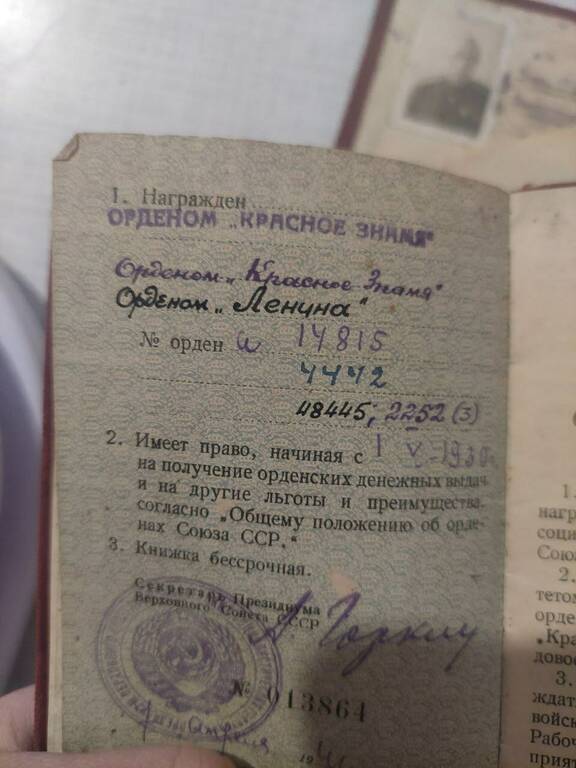 1. Награжден
ОРДЕНОМ „КРАСНОЕ ЗНАМЯ"
Орденом „Красное Знамя"
Орденом „Ленина"
№ орден а 14815
4442
48445; 2252 (3)
2. Имеет право, начиная с 1 V-1930
на получение орденских денежных выдач
и на другие льготы и преимущества,
согласно „Общему положению об орде-
нах Союза ССР."
3. Книжка бессрочная.
Секретарь Президиума
Верховного Совета СССР
А Горкин
№ 013864
апреля
1.
нагр
соци
Союз
2.
тетом
орде
„Кра
довог
3.
ждат
войск
Рабоч
прият